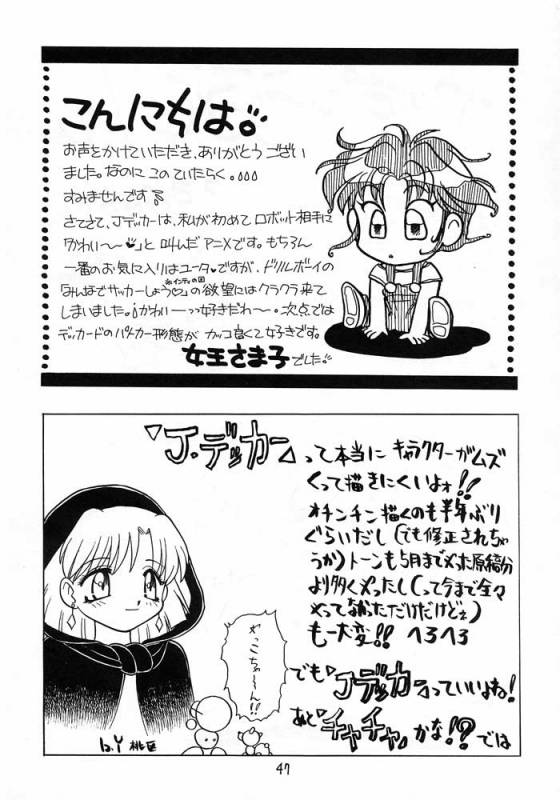 こんにちは。
お声をかけていただき、ありがとうござい
ました。なのに このていたらく。
すみませんです
さてさて、Jデッカーは、私が初めて ロボット相手に
「かわい〜〜♥」と 叫んだ アニメです。もちろん
一番のお気に入りはユータ♥ですが、ドリルボーイの
「みんなでサッカーしよう♡」の欲望にはクラクラ来て
しまいました。かわいーっっ好きだわ〜。次点では
デッカードのパトカー形態が カッコ良くて好きです。
女王さま子でした。
「J.デッカー」って本当に キャラクターがムズ
くって描きにくいよォ!!
オチンチン描くのも半年ぶり
ぐらいだし(でも修正されちゃ
うか)トーンも5月までやった原稿分
より多くやったし(って今まで全々
やってなかっただけだけどぇ)
もー大変!! へろへろ
でも「Jデッカー」っていいよね!
あと「チャチャ」かな!?では
やっこちゃ〜〜ん!!
b.Y
47